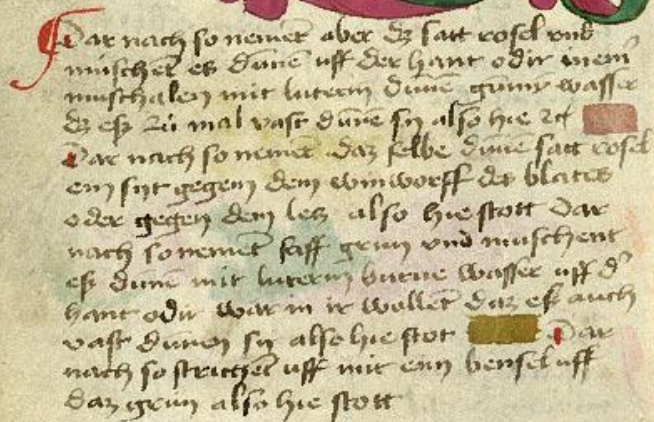 Dar nach so nement aber dz satt rosel vnd
muschent es dúnn uff der hant odir in eim
muschalen mit luterm dúnē gummy wasser
dz eß zú mal vast dúnn sy also hie
Dar nach so nemēt daz selbe dúnē satt rosel
ein syt gegem dem vmworff des blates
oder gegen dem letz also hie stott Dar
nach so nemēt saff grun vnd muschent
eß dúnē mit luterm burne wasser uff d'
hant odir war in ir wollēt daz eß auch
vast dúnn sy also hie stot Dar
nach so strichēt uff mit eim bensel uff
daz grun also hie stott